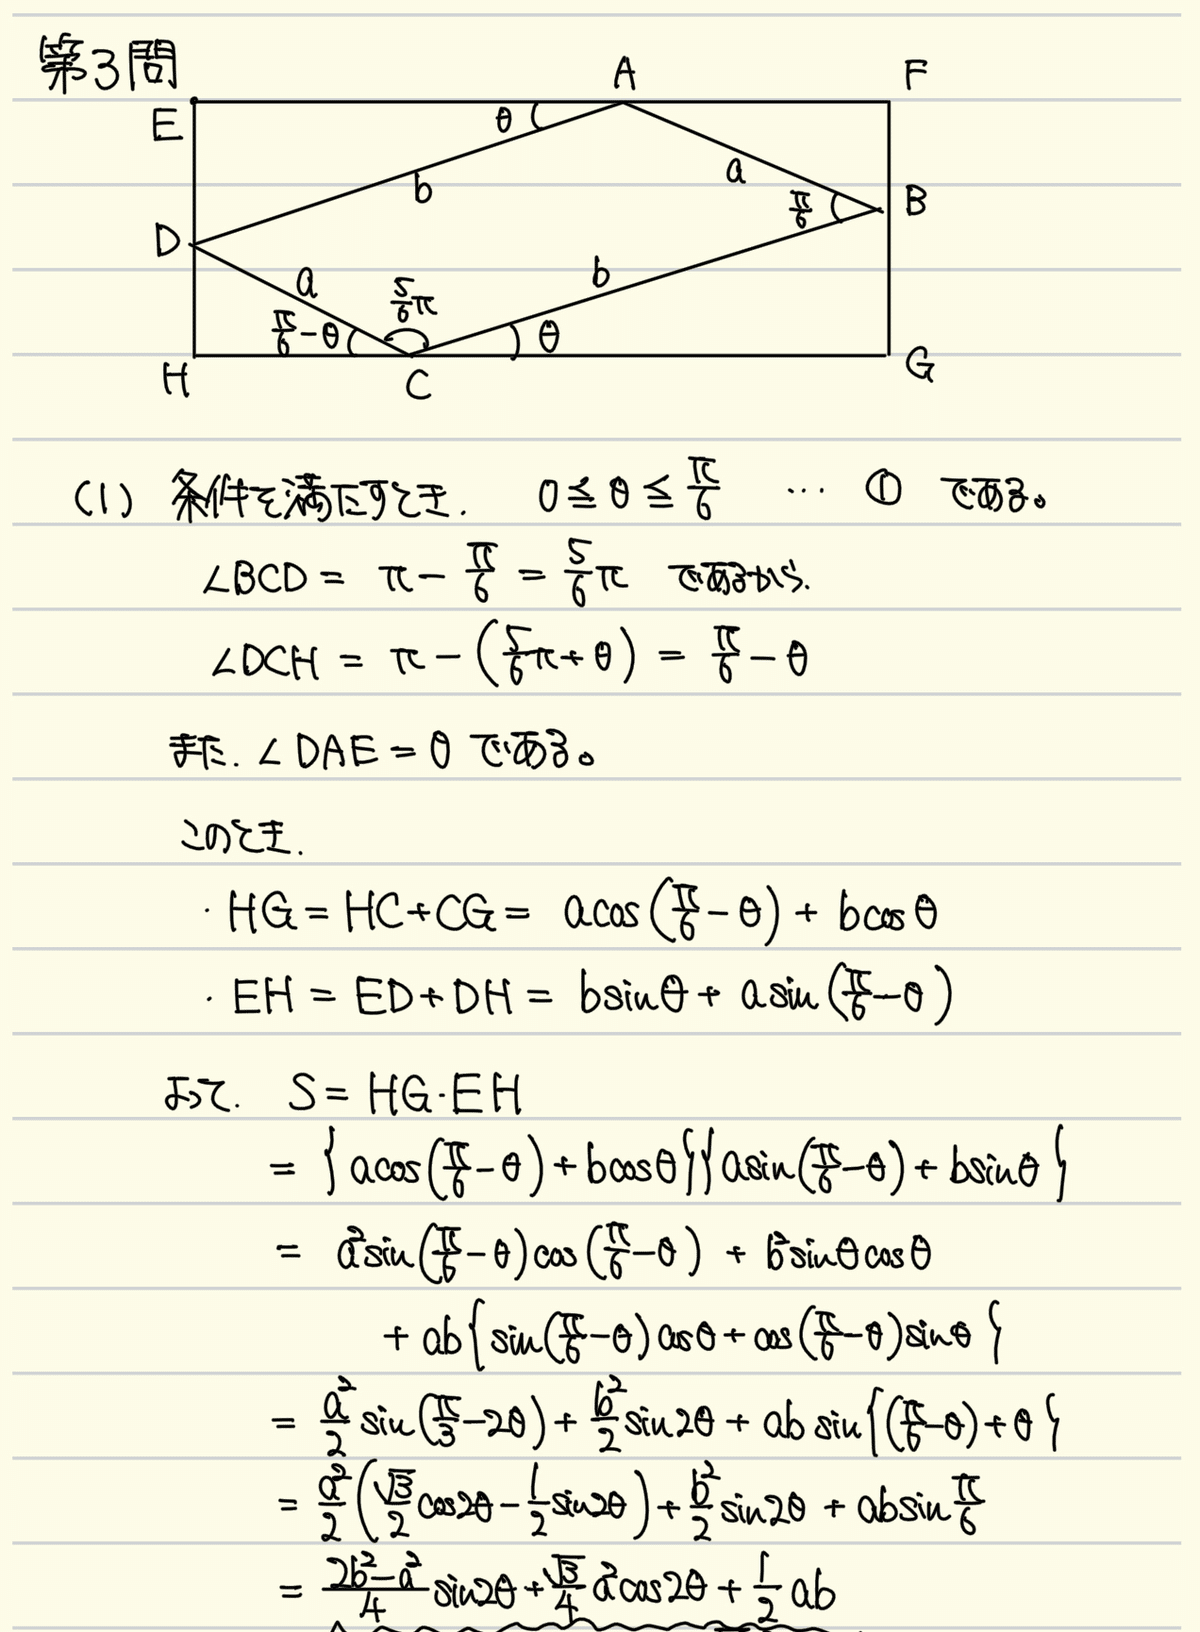 第3問
A
F
E
θ
a
b
π/6
B
D
a
5/6π
b
π/6-θ
θ
H
C
G
(1) 条件を満たすとき. 0≦θ≦π/6 … ① である。
∠BCD = π-π/6 = 5/6π であるから.
∠DCH = π-(5/6π+θ) = π/6-θ
また. ∠DAE=θ である。
このとき.
・HG=HC+CG= acos(π/6-θ) + bcosθ
・EH = ED+DH = bsinθ+ asin(π/6-θ)
よって. S= HG・EH
= {acos(π/6-θ)+bcosθ}{asin(π/6-θ)+ bsinθ}
= a²sin(π/6-θ)cos(π/6-θ) + b²sinθcosθ
+ ab{sin(π/6-θ)cosθ+cos(π/6-θ)sinθ}
= a²/2 sin(π/3-2θ)+ b²/2 sin2θ + ab sin{(π/6-θ)+θ}
= a²/2(√3/2 cos2θ-1/2 sin2θ)+ b²/2 sin2θ + absinπ/6
= 2b²-a²/4 sin2θ+√3/4 a²cos2θ+1/2 ab